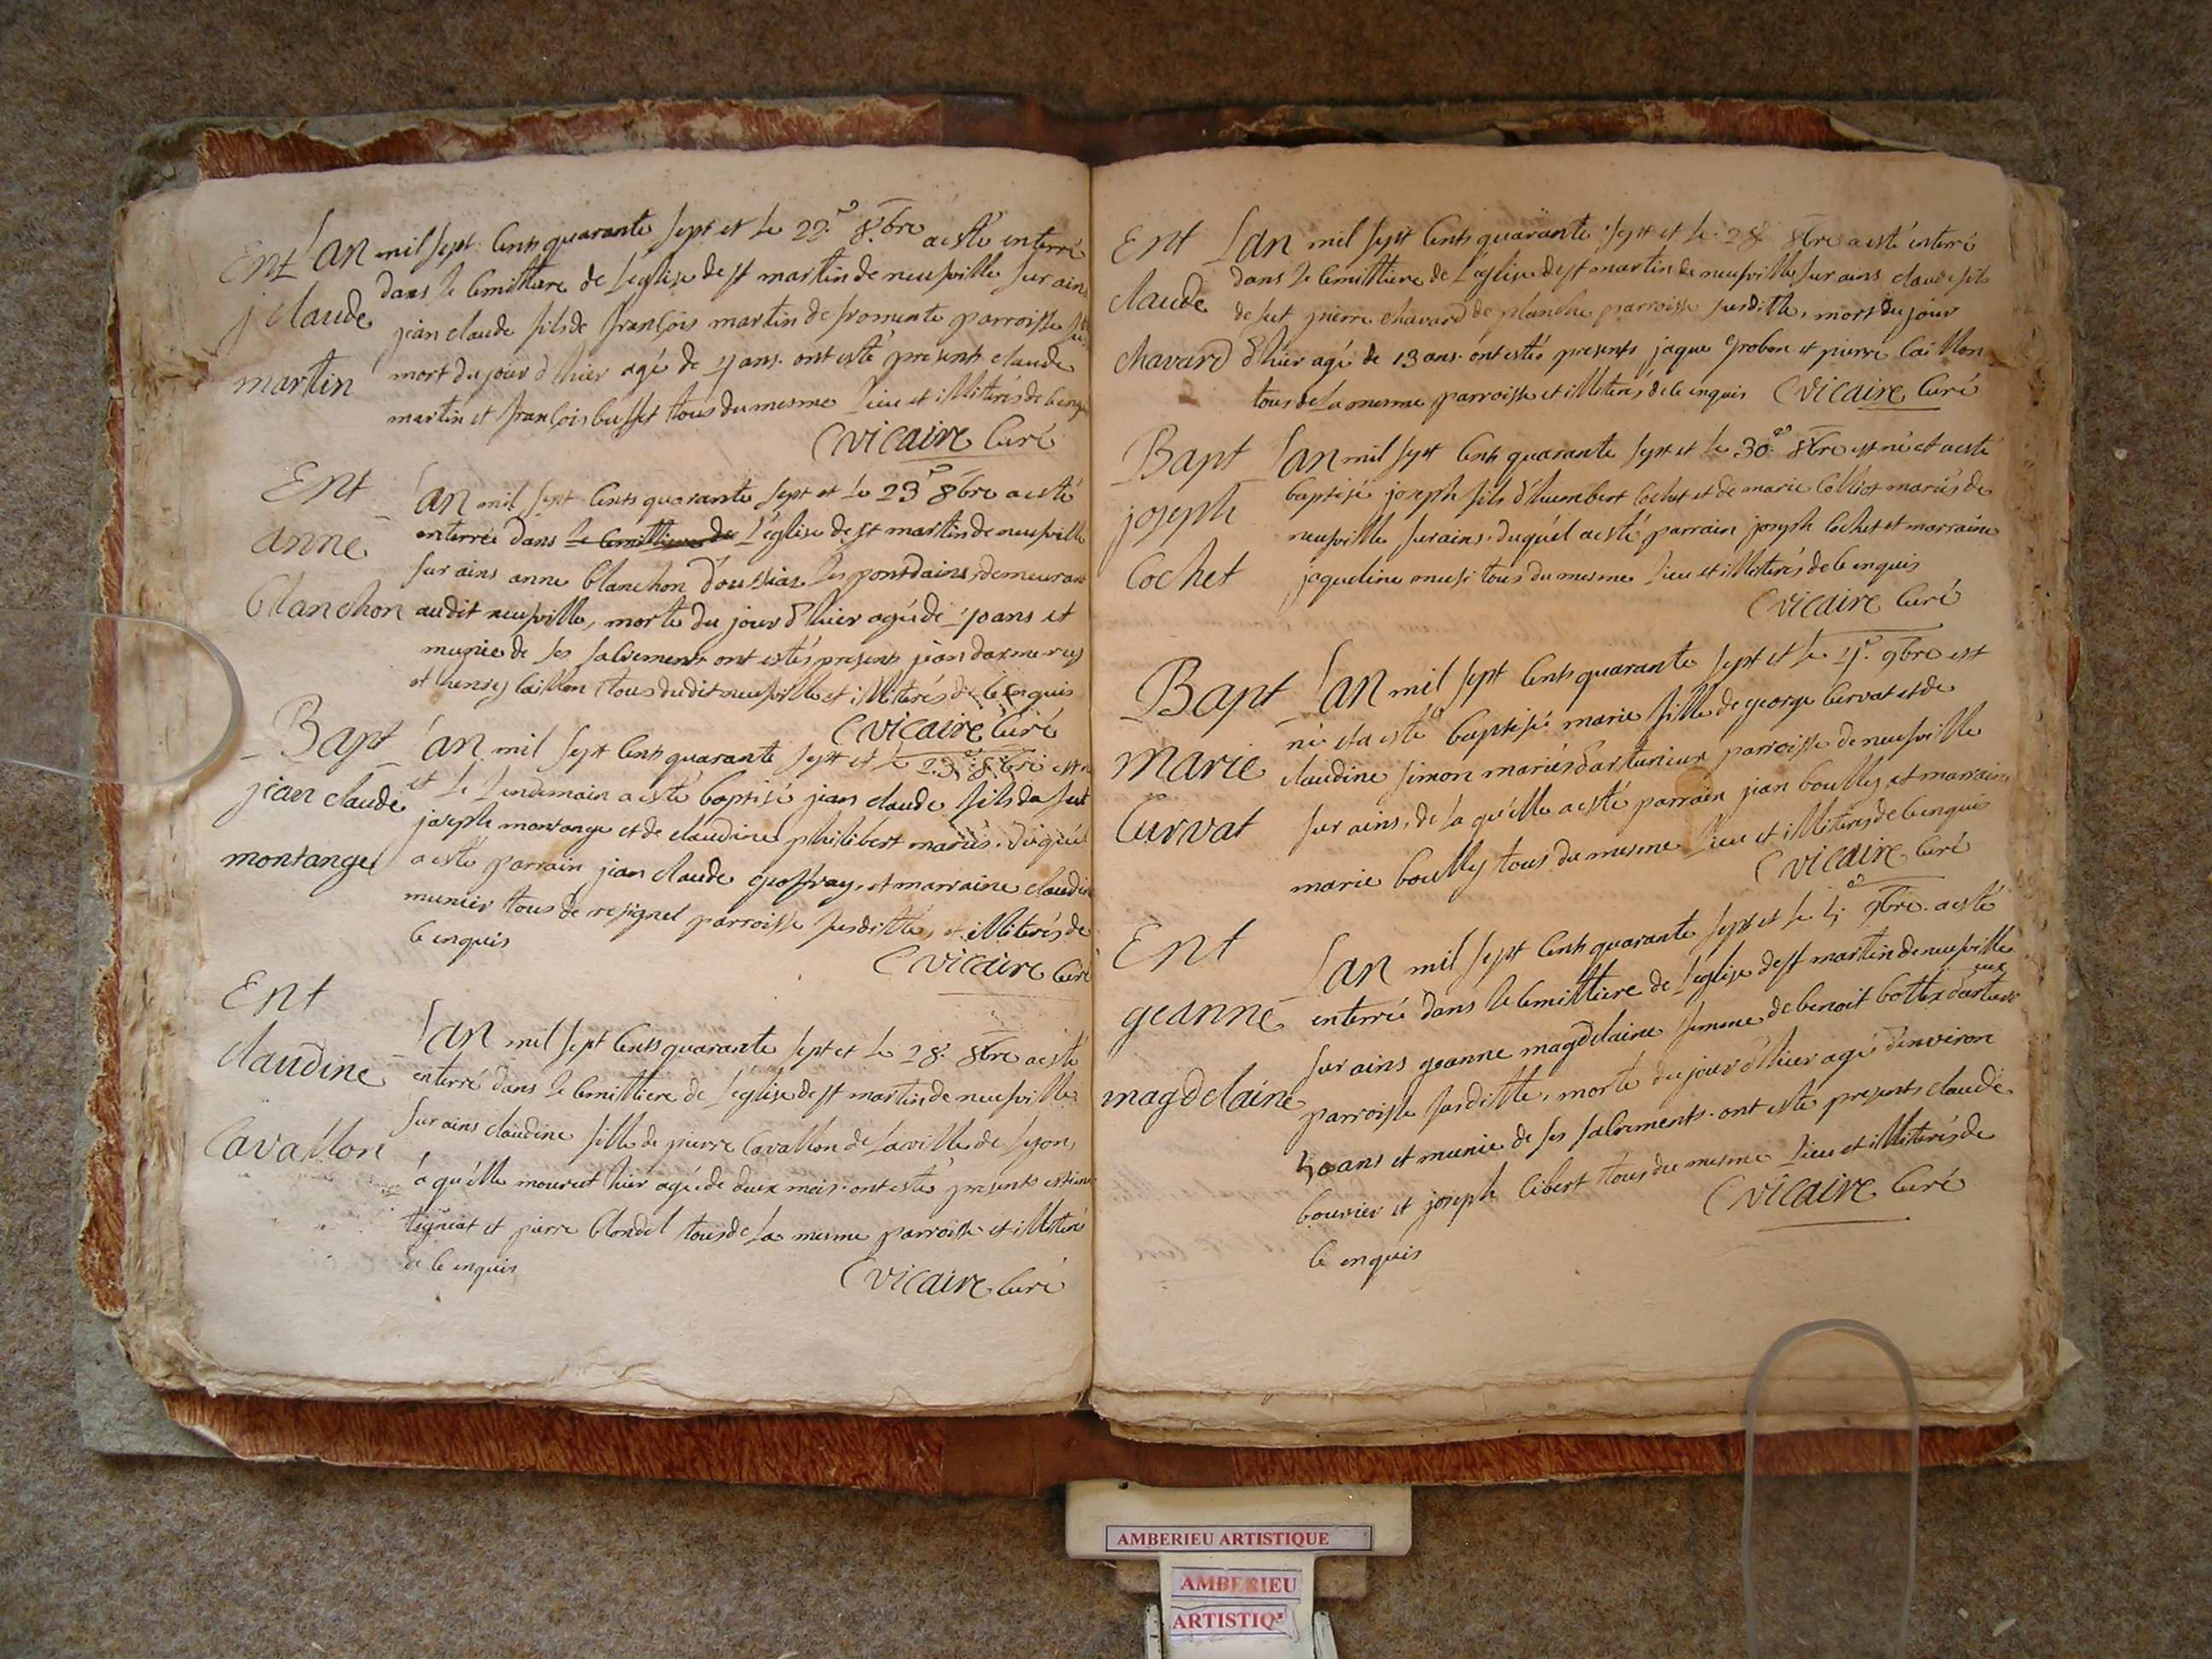 Ent
j claude
martin
Lan mil sept Cents quarante sept et Le 22e 8bre a esté enterré
dans le Cemittiere de L'eglise de st martin de neufville sur ains
jean claude fils de françois martin de fromente parroisse
mort du jour d'hier agé de 4 ans. ont esté presents claude
martin et françois buffet tous du mesme Lieu et illiterés de
Cvicaire Curé
Ent
anne
blanchon
Lan mil sept Cents quarante sept et Le 23e 8bre a esté
enterrée dans le Cemittiere de L'eglise de st martin de neufville
sur ains anne blanchon d'oussiat Les pontdains, demeurant
audit neufville, morte du jour d'hier agée de 40 ans et
munie de ses sacrements ont estés presents jean
et caillon tous dudit neufville et illiterés de ce enquis
Cvicaire Curé
Bapt
jean claude
montange
Lan mil sept Cents quarante sept et Le 23e 8bre est né
et Le Lendemain a esté baptisé jean claude fils de fut
joseph montange et de claudine philibert mariés. duquel
a esté parrain jean claude geoffray, et marraine claudine
munier tous de resignel parroisse susditte, et illiterés de
ce enquis
Cvicaire Curé
Ent
claudine
Cavallon
Lan mil sept Cents quarante sept et Le 28e 8bre a esté
enterré dans Le Cemittiere de L'eglise de st martin de neufville
sur ains claudine fille de pierre Cavallon de La ville de Lyon,
à qu'elle mourut hier agée de deux mois. ont estés presents
tigneat et pierre blondel tous de La mesme parroisse et illiterés
de ce enquis
Cvicaire Curé
Ent
claude
chavard
Lan mil sept Cents quarante sept et Le 28e 8bre a esté enterré
dans Le Cemittiere de L'eglise de st martin de neufville sur ains claude fils
de fut pierre chavard de planche parroisse susditte, mort du jour
d'hier agé de 13 ans. ont estés presents jaque probon et pierre Caillon
tous de La mesme parroisse et illiterés de ce enquis Cvicaire Curé
Bapt
joseph
Cochet
Lan mil sept Cents quarante sept et Le 30e 8bre est né et a esté
baptisé joseph fils d'humbert Cochet et de marie Colliot mariés de
neufville sur ains. duquel a esté parrain joseph Cochet et marraine
jaqueline tous du mesme Lieu et illiterés de ce enquis
Cvicaire Curé
Bapt
Marie
Curvat
Lan mil sept Cents quarante sept et Le 4e 9bre est
né et a esté baptisé marie fille de george Curvat et de
claudine simon mariés d'artunieux parroisse de neufville
sur ains, de La qu'elle a esté parrain jean boully et marraine
marie boully tous du mesme Lieu et illiterés de ce enquis
Cvicaire Curé
Ent
geanne
magdelaine
Lan mil sept Cents quarante sept et Le 5e 9bre a esté
enterrée dans Le Cemittiere de L'eglise de st martin de neufville
sur ains geanne magdelaine femme de benoit bottex
parroisse susditte, morte du jour d'hier agé d'environ
50 ans et munie de ses sacrements. ont esté presents claude
bouvier et joseph Cibert tous du mesme Lieu et illiterés de
ce enquis
Cvicaire Curé
AMBERIEU ARTISTIQUE
AMBERIEU
ARTISTIQ